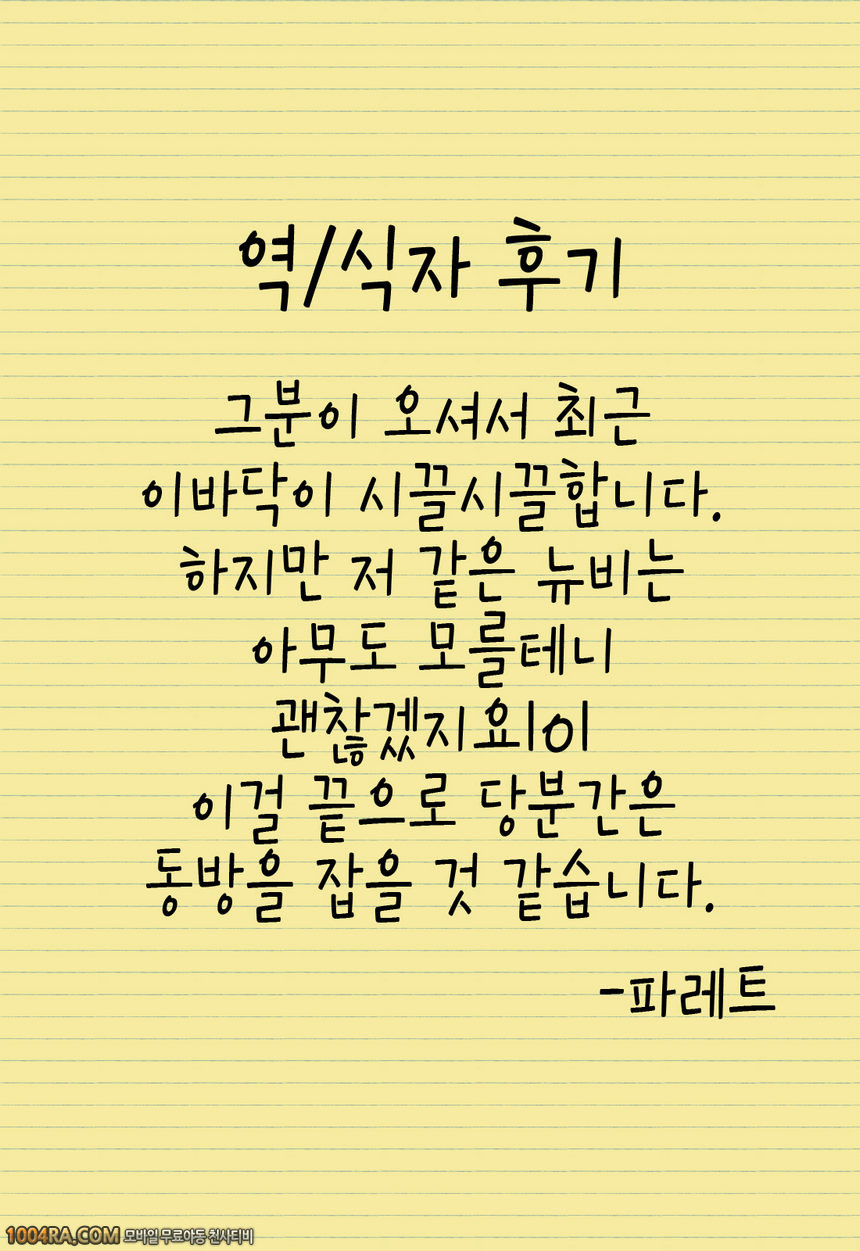 역/식자 후기
그분이 오셔서 최근
이바닥이 시끌시끌합니다.
하지만 저 같은 뉴비는
아무도 모를테니
괜찮겠지요ㅣ이
이걸 끝으로 당분간은
동방을 잡을 것 같습니다.
-파레트
1004RA.COM 모바일 무료야동 천사티비